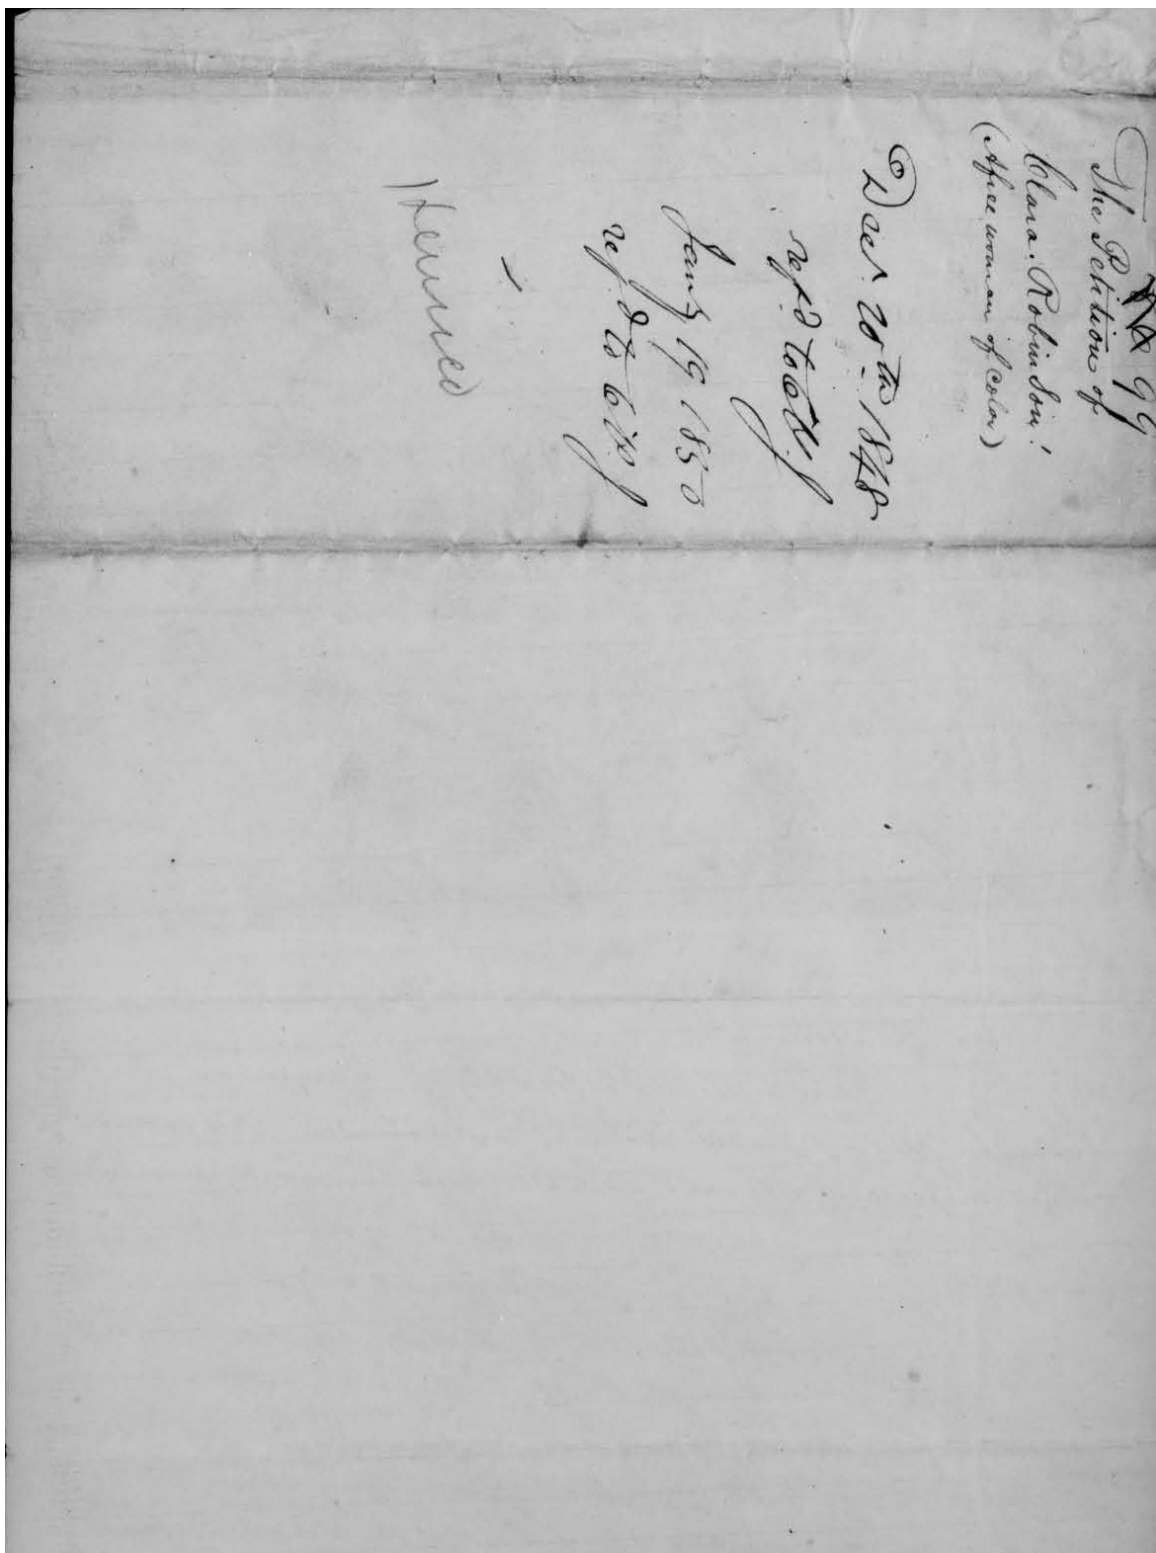 99
The Petition of
Clara. Robinson!
(A free woman of color)
Decr. 20th 1848
refd to C of J
Jany 19 1850
refd to C of J